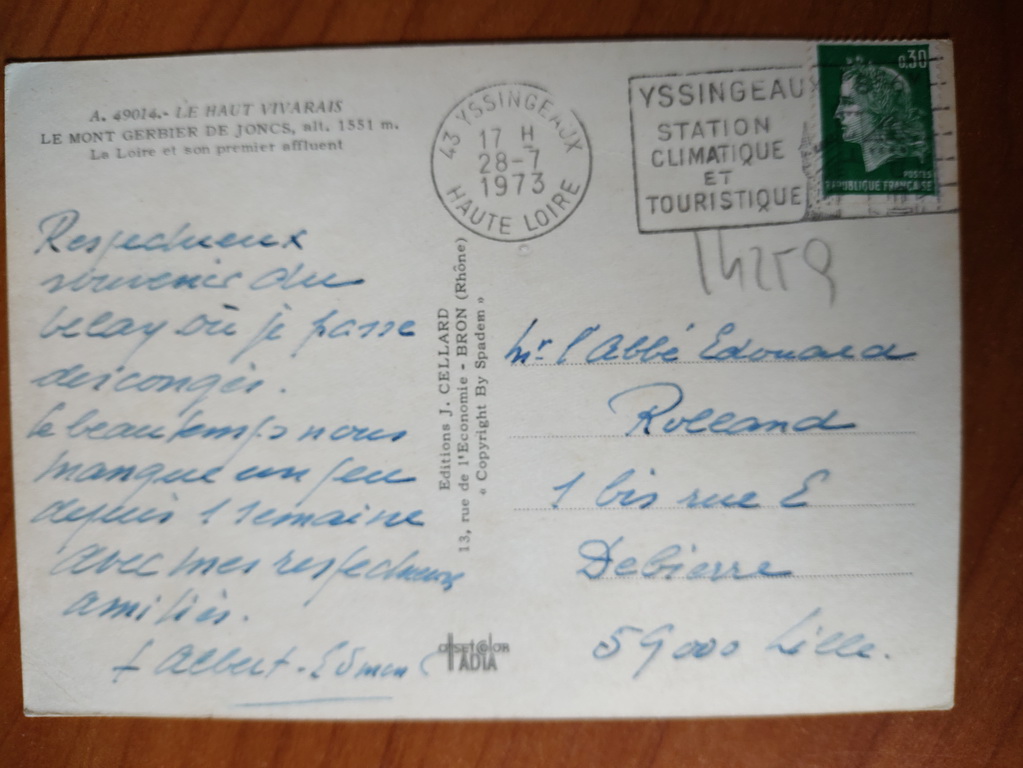 A. 49014.- LE HAUT VIVARAIS
LE MONT GERBIER DE JONCS, alt. 1551 m.
La Loire et son premier affluent
43 YSSINGEAUX
17 H
28-7
1973
HAUTE LOIRE
YSSINGEAUX
STATION
CLIMATIQUE
ET
TOURISTIQUE
0,30
POSTES
REPUBLIQUE FRANÇAISE
14259
Respectueux
souvenir du
Velay où je passe
des congés.
Le beau temps nous
manque un peu
depuis 1 semaine
avec mes respectueuses
amitiés.
f Albert-
Editions J. CELLARD
13, rue de l'Economie - BRON (Rhône)
« Copyright By Spadem »
offset color
IADIA
Mr l'Abbé Edouard
Rolland
1 bis rue E
Debierre
59000 Lille.